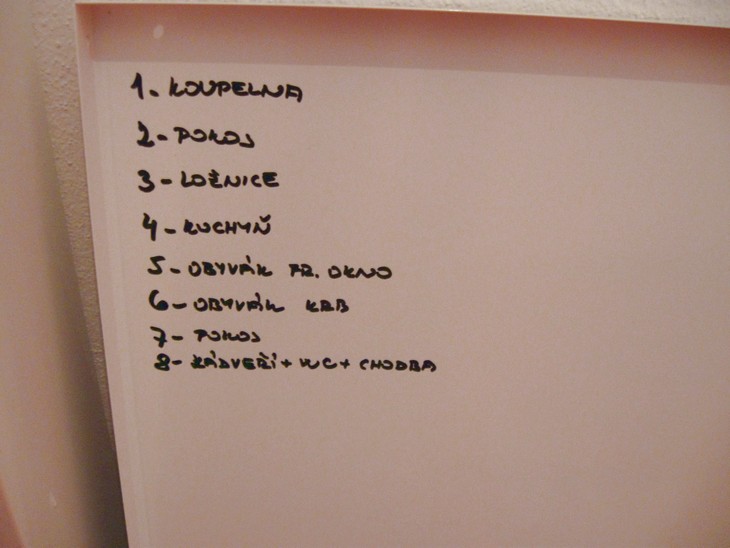 1- KOUPELNA
2- POKOJ
3- LOŽNICE
4- KUCHYŇ
5- OBYVÁK FR. OKNO
6- OBYVÁK KRB
7- POKOJ
8- ZÁDVEŘÍ + WC + CHODBA